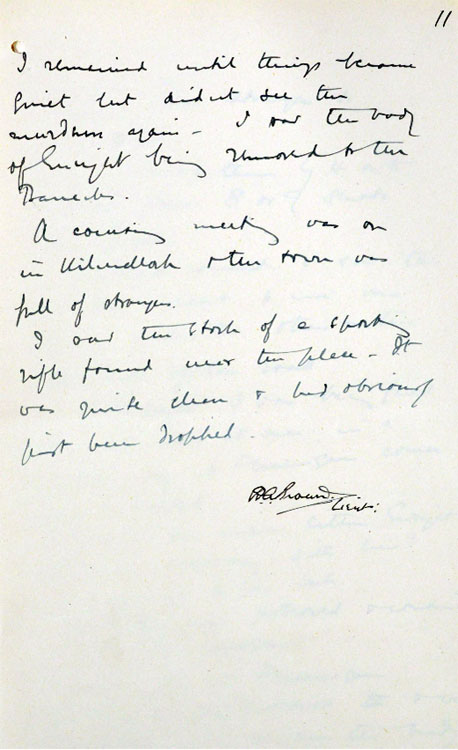 11
I remained until things became
quiet but didnt see the
murderers again - I saw the body
of Enright being removed to the
Barracks.
A coursing meeting was on
in Kilmallock & the town was
full of strangers.
I saw the stock of a sporting
rifle found near the place - It
was quite clean & had obviously
just been dropped.
Lieut: